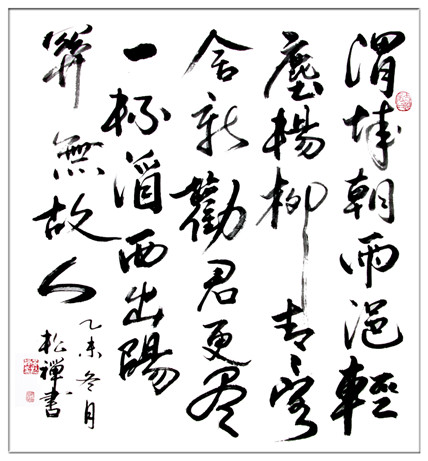 渭城朝雨浥輕
塵楊柳青〻客
舍新勸君更盡
一杯酒西出陽
關無故人
乙未冬月
松禪書